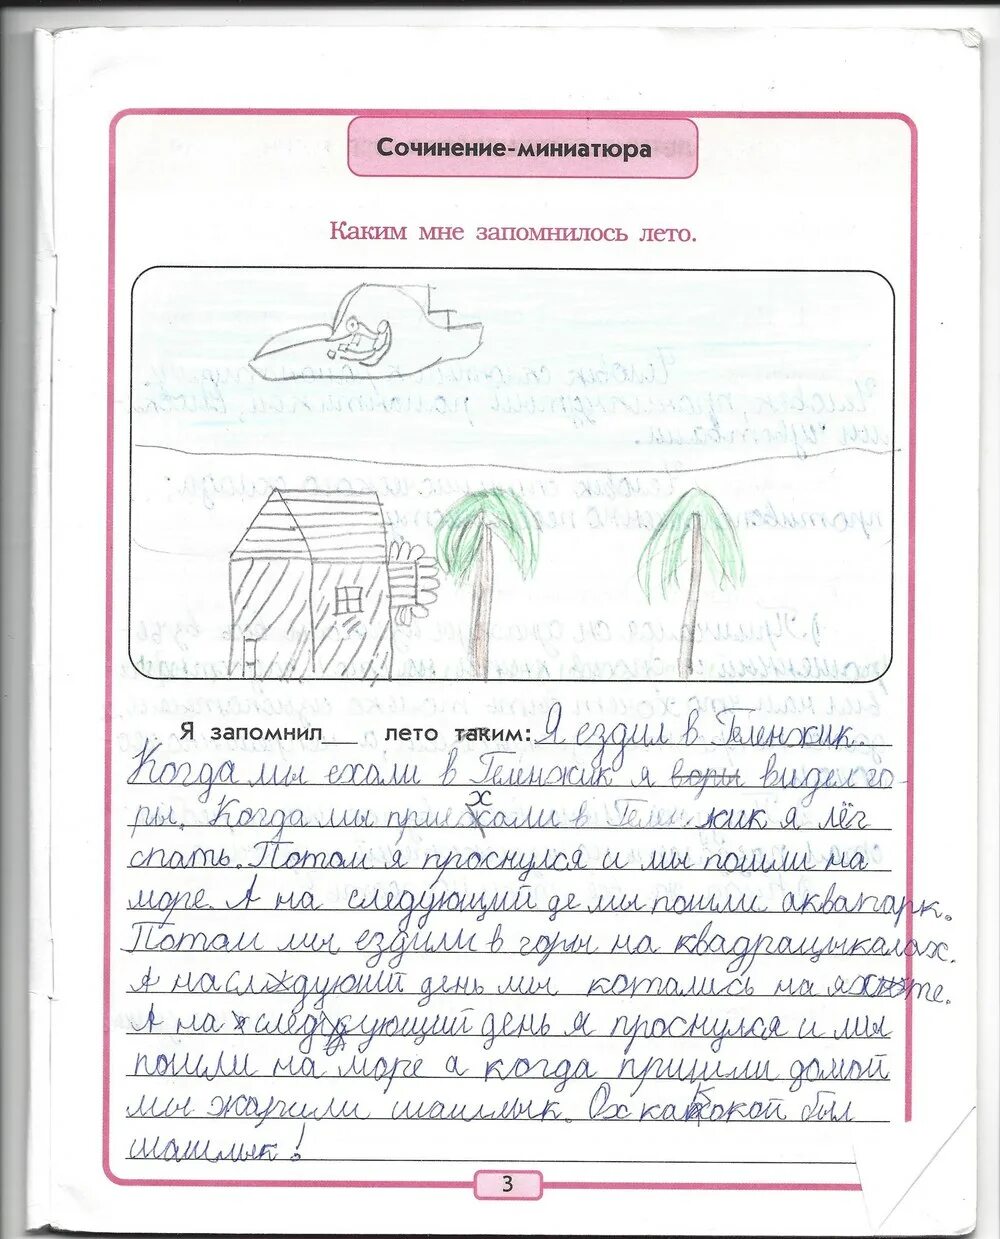 Сочинение-миниатюра
Каким мне запомнилось лето.
Я запомнил лето таким: Я ездил в Геленжик.
Когда мы ехали в Геленжик я видел го-
ры. Когда мы приехали в Геленжик я лёг
спать. Потом я проснулся и мы пошли на
море. А на следующий де мы пошли аквапарк.
Потом мы ездили в горы на квадрацыкалах.
А на следующий день мы катались на яхте.
А на следующий день я проснулся и мы
пошли на море а когда пришли домой
мы жарили шашлык. Ох какокой был
шашлык!
3